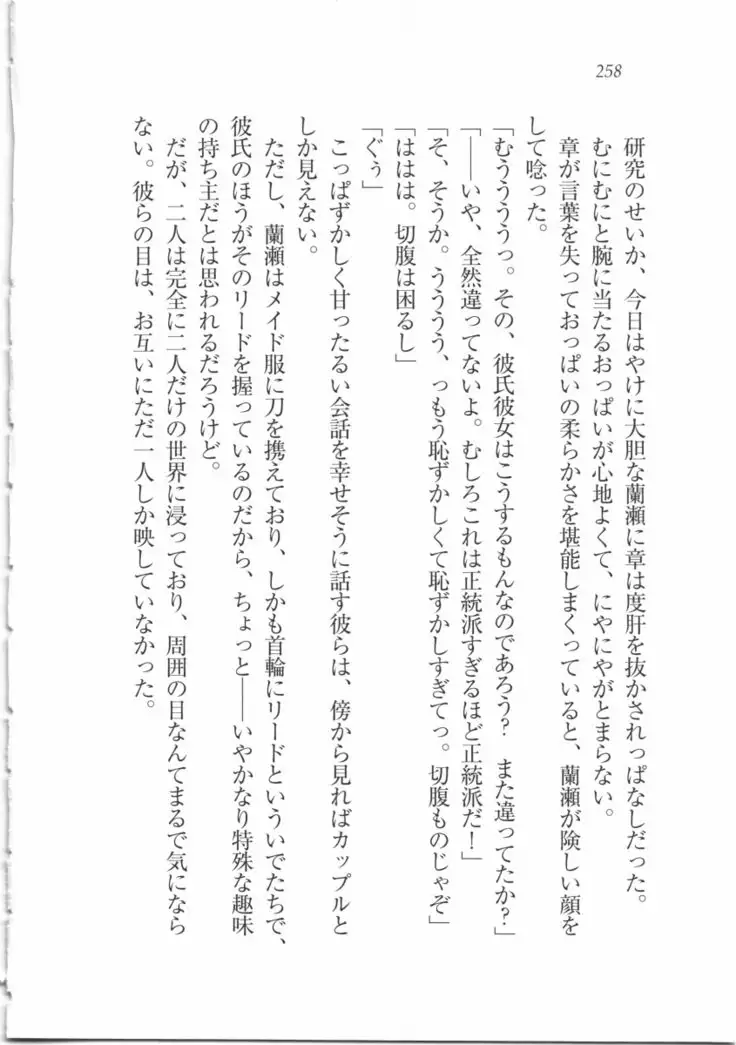 258
研究のせいか、今日はやけに大胆な蘭瀬に章は度肝を抜かされっぱなしだった。
むにむにと腕に当たるおっぱいが心地よくて、にやにやがとまらない。
章が言葉を失っておっぱいの柔らかさを堪能しまくっていると、蘭瀬が険しい顔を
して唸った。
「むうううぅっ。その、彼氏彼女はこうするもんなのであろう？　また違ってたか？」
「――いや、全然違ってないよ。むしろこれは正統派すぎるほど正統派だ！」
「そ、そうか。うううう、っもう恥ずかしくて恥ずかしすぎてっ。切腹ものじゃぞ」
「ははは。切腹は困るし」
「ぐぅ」
こっぱずかしく甘ったるい会話を幸せそうに話す彼らは、傍から見ればカップルと
しか見えない。
ただし、蘭瀬はメイド服に刀を携えており、しかも首輪にリードといういでたちで、
彼氏のほうがそのリードを握っているのだから、ちょっと――いやかなり特殊な趣味
の持ち主だとは思われるだろうけど。
だが、二人は完全に二人だけの世界に浸っており、周囲の目なんてまるで気になら
ない。彼らの目は、お互いにただ一人しか映していなかった。